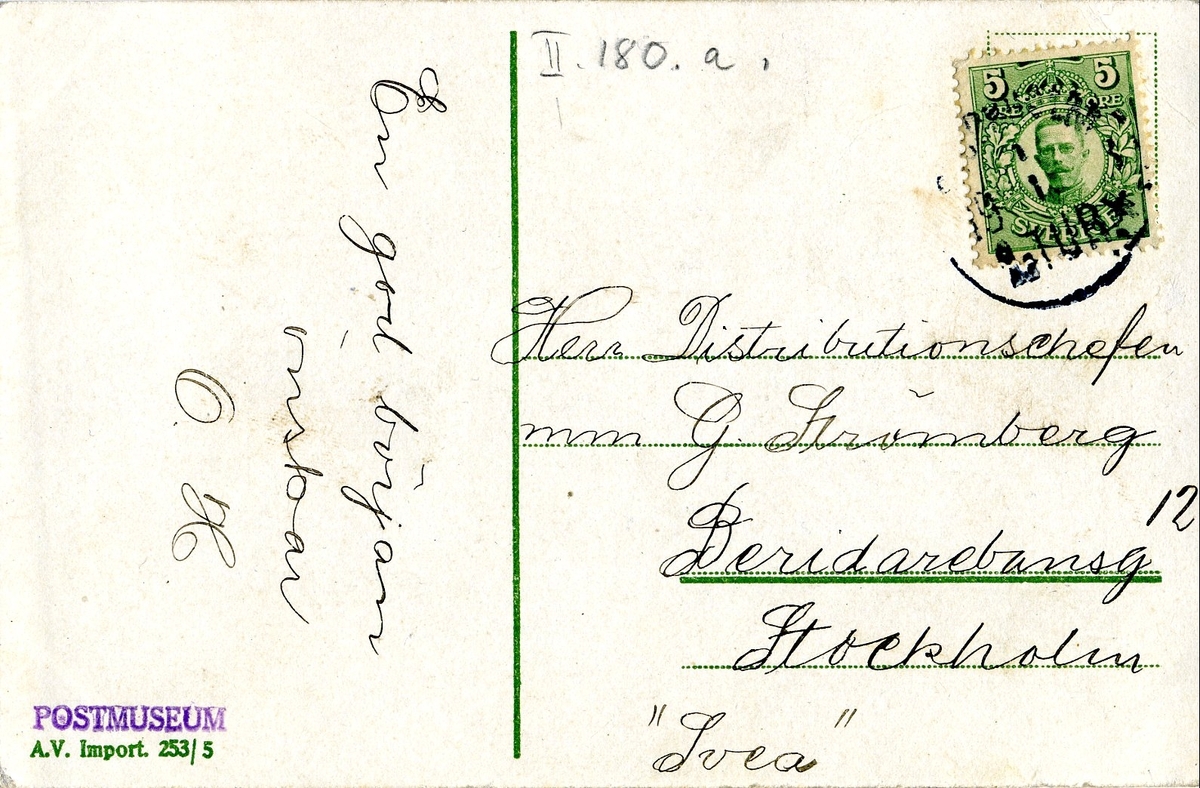 En god början
önskar
O. H
II. 180. a.
5 5
ÖRE ÖRE
SVERIGE
Herr Distributionschefen
mm G. Strömberg
Beridarebansg 12
Stockholm
"Svea"
POSTMUSEUM
A.V. Import. 253/5